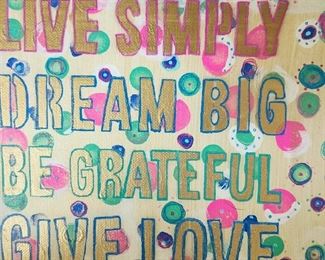 LIVE SIMPLY
DREAM BIG
BE GRATEFUL
GIVE LOVE